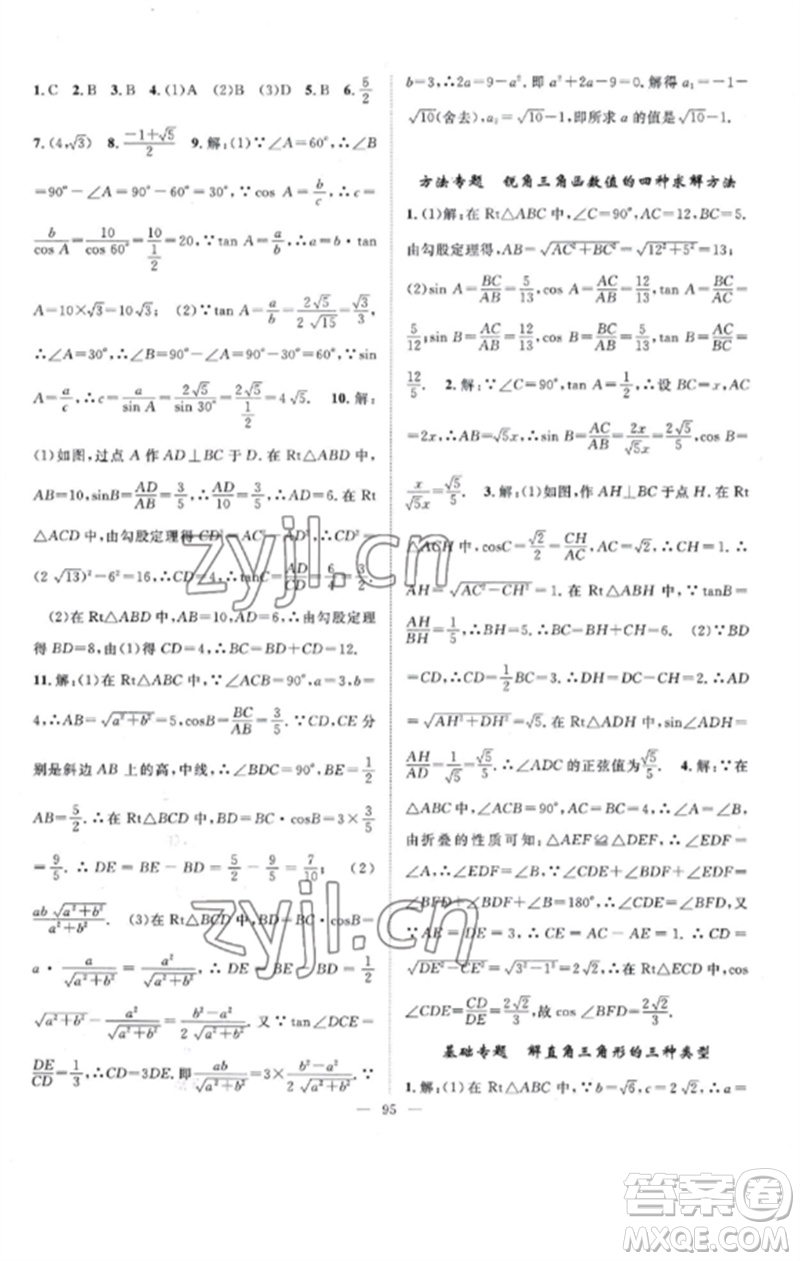 1.C 2.B 3.B 4.(1)A (2)B (3)D 5.B 6.5/2
7.(4,√3) 8.(-1+√5)/2 9.解:(1)∵∠A=60°,∴∠B
=90°-∠A=90°-60°=30°,∵cos A=b/c,∴c=
b/cos A=10/cos 60°=10/(1/2)=20,∵tan A=a/b,∴a=b·tan
A=10×√3=10√3; (2)∵tan A=a/b=2√5/2√15=√3/3,
∴∠A=30°,∴∠B=90°-∠A=90°-30°=60°,∵sin
A=a/c,∴c=a/sin A=2√5/sin 30°=2√5/(1/2)=4√5. 10.解:
(1)如图,过点A作AD⊥BC于D,在Rt△ABD中,
AB=10,sinB=AD/AB=3/5,∴AD/10=3/5,∴AD=6.在Rt
△ACD中,由勾股定理得CD²=AC²-AD²,∴CD²=
(2√13)²-6²=16,∴CD=4,∴tanC=AD/CD=6/4=3/2.
(2)在Rt△ABD中,AB=10,AD=6,∴由勾股定理
得BD=8,由(1)得CD=4,∴BC=BD+CD=12.
11.解:(1)在Rt△ABC中,∵∠ACB=90°,a=3,b=
4,∴AB=√(a²+b²)=5,cosB=BC/AB=3/5.∵CD,CE分
别是斜边AB上的高,中线,∴∠BDC=90°,BE=1/2
AB=5/2.∴在Rt△BCD中,BD=BC·cosB=3×3/5
=9/5.∴DE=BE-BD=5/2-9/5=7/10; (2)
ab√(a²+b²)/(a²+b²). (3)在Rt△BCD中,BD=BC·cosB=
a·a/√(a²+b²)=a²/√(a²+b²),∴DE=BE-BD=1/2
√(a²+b²)-a²/√(a²+b²)=(b²-a²)/2√(a²+b²).又∵tan∠DCE=
DE/CD=1/3,∴CD=3DE.即ab/√(a²+b²)=3×(b²-a²)/2√(a²+b²).∵
b=3,∴2a=9-a².即a²+2a-9=0.解得a₁=-1-
√10(舍去),a₂=√10-1,即所求a的值是√10-1.
方法专题 锐角三角函数值的四种求解方法
1.(1)解:在Rt△ABC中,∠C=90°,AC=12,BC=5.
由勾股定理得,AB=√(AC²+BC²)=√(12²+5²)=13;
(2)sin A=BC/AB=5/13,cos A=AC/AB=12/13,tan A=BC/AC=
5/12;sin B=AC/AB=12/13,cos B=BC/AB=5/13,tan B=AC/BC=
12/5. 2.解:∵∠C=90°,tan A=1/2,∴设BC=x,AC
=2x,∴AB=√5x,∴sin B=AC/AB=2x/√5x=2√5/5,cos B=
x/√5x=√5/5. 3.解:(1)如图,作AH⊥BC于点H.在Rt
△ACH中,cosC=√2/2=CH/AC,AC=√2,∴CH=1.∴
AH=√(AC²-CH²)=1.在Rt△ABH中,∵tanB=
AH/BH=1/5,∴BH=5,∴BC=BH+CH=6. (2)∵BD
=CD,∴CD=1/2BC=3.∴DH=DC-CH=2.∴AD
=√(AH²+DH²)=√5.在Rt△ADH中,sin∠ADH=
AH/AD=1/√5=√5/5.∴∠ADC的正弦值为√5/5. 4.解:∵在
△ABC中,∠ACB=90°,AC=BC=4,∴∠A=∠B,
由折叠的性质可知:△AEF≌△DEF,∴∠EDF=
∠A,∴∠EDF=∠B,∴∠CDE+∠BDF+∠EDF=
∠BFD+∠BDF+∠B=180°,∴∠CDE=∠BFD.又
∵AE=DE=3,∴CE=AC-AE=4-3=1,∴CD=
√(DE²-CE²)=√(3²-1²)=2√2.∴在Rt△ECD中,cos
∠CDE=CD/DE=2√2/3,故cos∠BFD=2√2/3.
基础专题 解直角三角形的三种类型
1.解:(1)在Rt△ABC中,∵b=√6,c=2√2,∴a=
95
zyjl.cn
zyjl.cn
答案圈
MXQE.COM